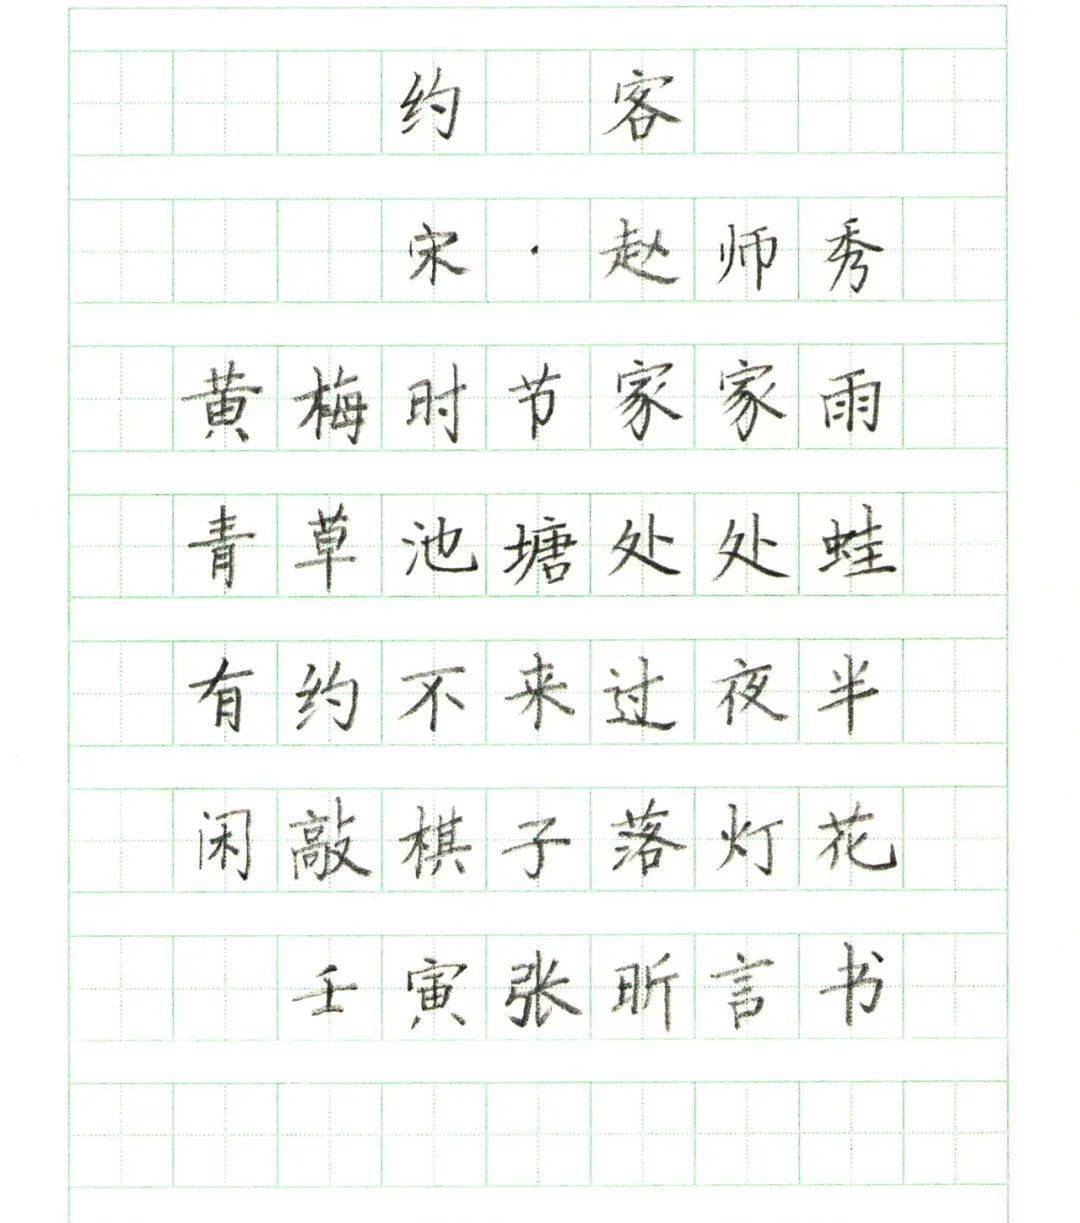 约客
宋·赵师秀
黄梅时节家家雨
青草池塘处处蛙
有约不来过夜半
闲敲棋子落灯花
壬寅张昕言书